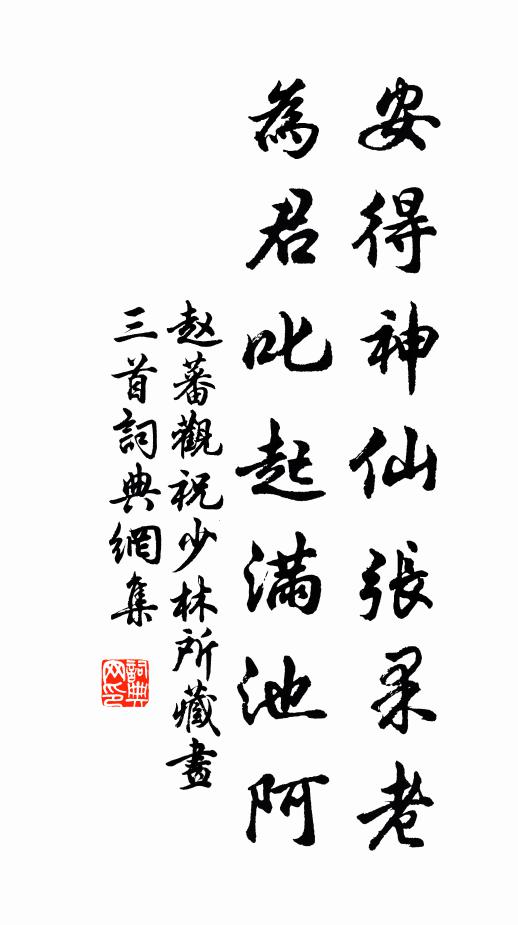 安得神仙張果老
為君叱起滿池阿
赵蕃觀祝少林所藏畫
三首詞典網集
詞典
网印